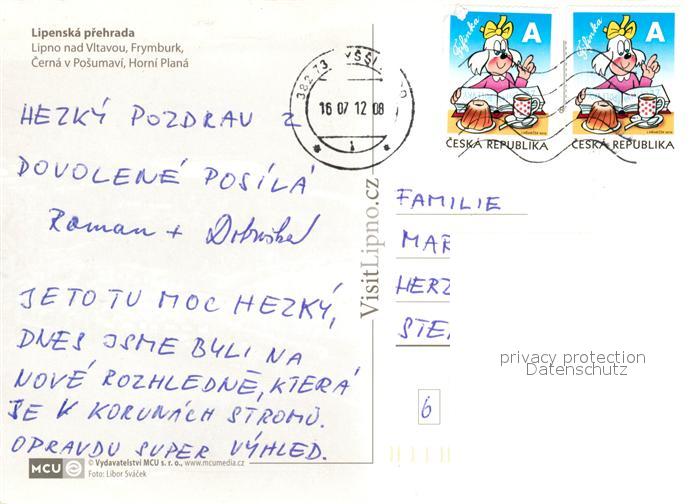 Lipenská přehrada
Lipno nad Vltavou, Frymburk,
Černá v Pošumaví, Horní Planá
HEZKÝ POZDRAV Z
DOVOLENÉ POSÍLÁ
Roman +
JE TO TU MOC HEZKÝ,
DNES JSME BYLI NA
NOVÉ ROZHLEDNĚ, KTERÁ
JE V KORUNÁCH STROMŮ.
OPRAVDU SUPER VÝHLED.
MCU © Vydavatelství MCU s. r. o., www.mcumedia.cz
Foto: Libor Sváček
VisitLipno.cz
382 73 VYŠŠÍ
16 07 12 08
1
Fifinka
A
ČESKÁ REPUBLIKA
Fifinka
A
ČESKÁ REPUBLIKA
FAMILIE
MAR
HERZ
STE
privacy protection
Datenschutz
6